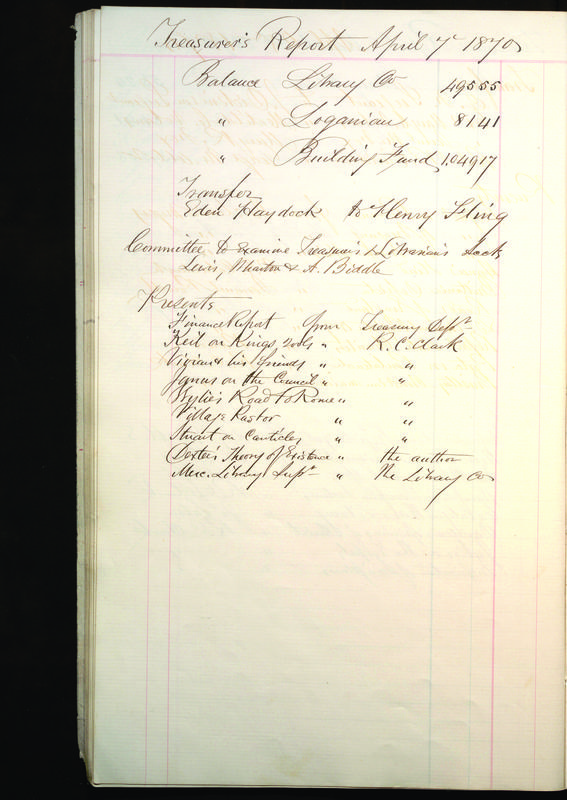 Treasurer's Report April 7 1870
Balance Library Co 495 55
" Loganian 81 41
" Building Fund 1.049 17
Transfer
Eden Haydock to Henry Fling
Committee to examine Treasurer's & Librarian's
Lewis, Wharton & A. Biddle
Presents
Finance Report from Treasury Dept
Keil on Kings, 2 vols " R. C. Clark
Vivian & his friends " "
Janus on the Council " "
Wylie's Road to Rome " "
Village Pastor " "
Stuart on Canticles " "
Dexter's Theory of Existence " the author
Merc. Library Rept " The Library Co